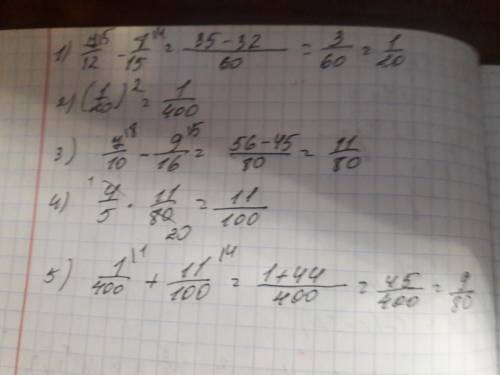 1) 7/12 \5 - 7/15 \4 = (35-32)/60 = 3/60 = 1/20
2) (1/20)² = 1/400
3) 7/10 \8 - 9/16 \5 = (56-45)/80 = 11/80
4) 4/5 · 11/80 = 11/100
1 20
5) 1/400 \1 + 11/100 \4 = (1+44)/400 = 45/400 = 9/80